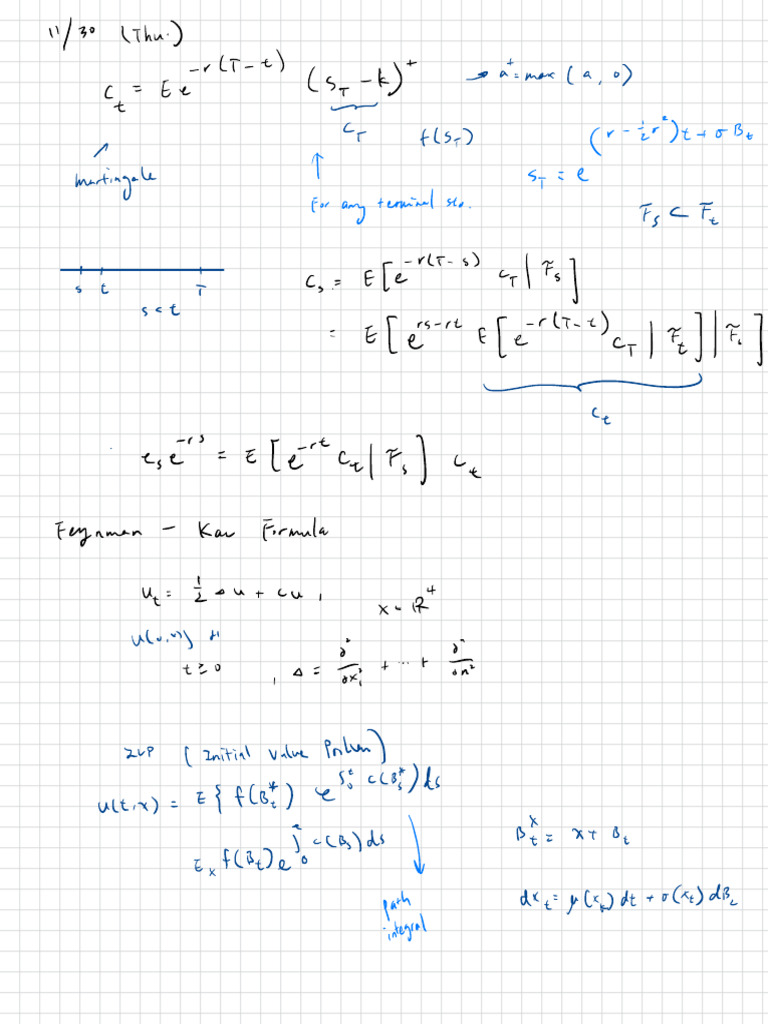 11/30 (Thu.)
C_t = E e^{-r(T-t)} (S_T - k)^+ → a^+ = max(a, 0)
C_T f(S_T)
S_T = e^{(r - ½r²)t + σB_t}
Martingale
For any terminal
F_s ⊂ F_t
s t T
s < t
C_s = E[e^{-r(T-s)} C_T | F_s]
= E[e^{rs-rt} E[e^{-r(T-t)} C_T | F_t] | F_s]
C_t
C_s e^{-rs} = E[e^{-rt} C_t | F_s] C_t
Feynman - Kac Formula
u_t = ½ Δu + cu,
t ≥ 0
, Δ = ∂²/∂x_1² + ... + ∂²/∂n²
IVP (Initial Value Problem)
u(t,x) = E{ f(B_t^x) e^{∫_0^t c(B_s^x) ds}
E_x f(B_t) e^{∫_0^t c(B_s) ds}
B_t^x = x + B_t
path
integral
dx_t = μ(x_t) dt + σ(x_t) dB_t